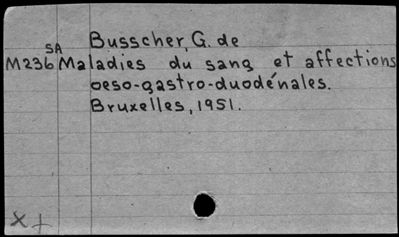 Busscher, G. de
SA
M236 Maladies du sang et affections
oeso-gastro-duodénales.
Bruxelles, 1951.
X +